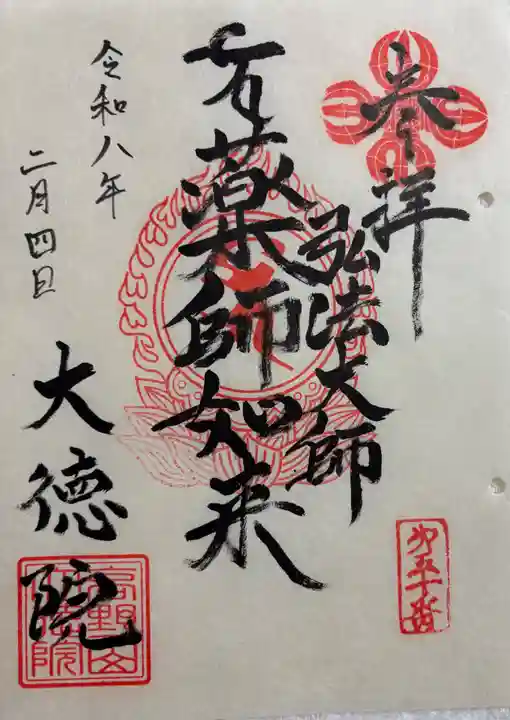 奉拝
弘法大師
薬師如来
令和八年
二月四日
大徳院
第五十番
高野山
大徳院